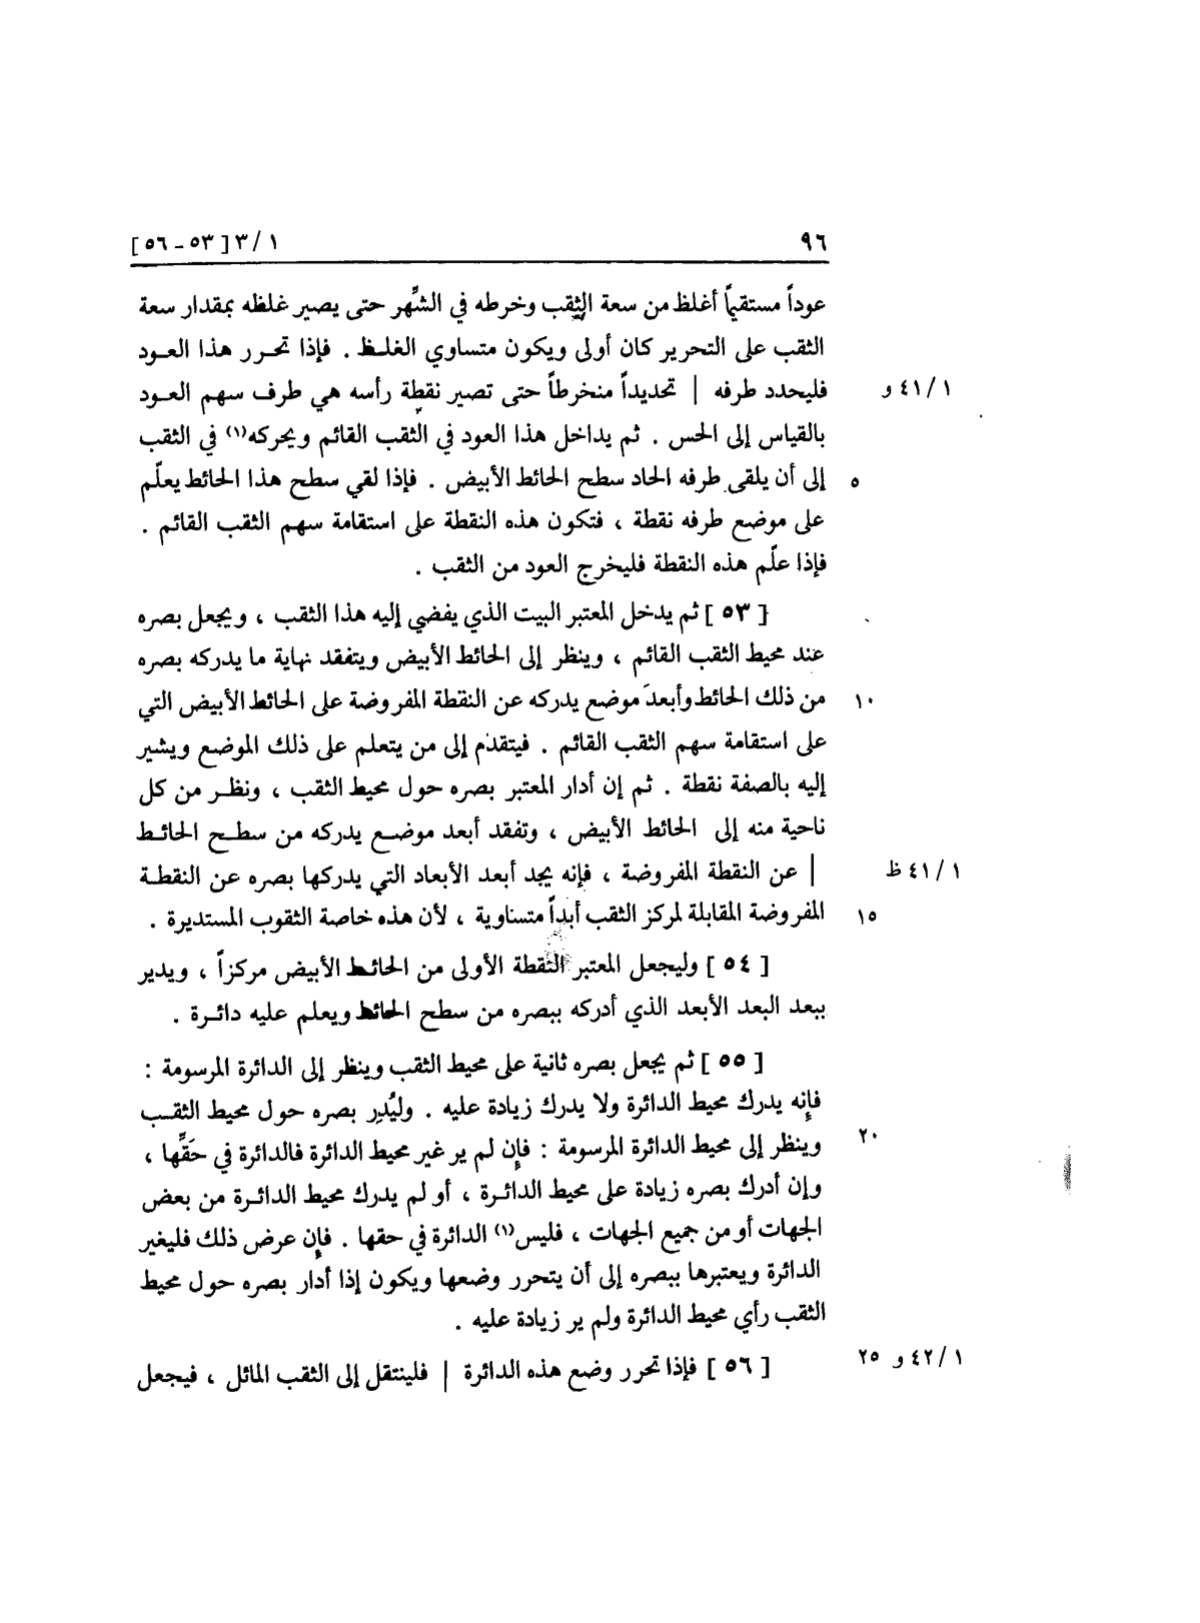 ٩٦
١ /٣ [٥٣ - ٥٦]
عوداً مستقيماً أغلظ من سعة الثقب وخرطه في الشَّهر حتى يصير غلظه بمقدار سعة
الثقب على التحرير كان أولى ويكون متساوي الغلظ . فإذا تحرر هذا العود
١ /٤١ و
فليحدد طرفه | تحديداً منخرطاً حتى تصير نقطة رأسه هي طرف سهم العود
بالقياس إلى الحس . ثم يداخل هذا العود في الثقب القائم ويحركه(١) في الثقب
٥
إلى أن يلقى طرفه الحاد سطح الحائط الأبيض . فإذا لقي سطح هذا الحائط يعلّم
على موضع طرفه نقطة ، فتكون هذه النقطة على استقامة سهم الثقب القائم .
فإذا علّم هذه النقطة فليخرج العود من الثقب .
[ ٥٣ ] ثم يدخل المعتبر البيت الذي يفضي إليه هذا الثقب ، ويجعل بصره
عند محيط الثقب القائم ، وينظر إلى الحائط الأبيض ويتفقد نهاية ما يدركه بصره
١٠
من ذلك الحائط وأبعدَ موضع يدركه عن النقطة المفروضة على الحائط الأبيض التي
على استقامة سهم الثقب القائم . فيتقدم إلى من يتعلم على ذلك الموضع ويشير
إليه بالصفة نقطة . ثم إن أدار المعتبر بصره حول محيط الثقب ، ونظر من كل
ناحية منه إلى الحائط الأبيض ، وتفقد أبعد موضع يدركه من سطح الحائط
١ /٤١ ظ
| عن النقطة المفروضة ، فإنه يجد أبعد الأبعاد التي يدركها بصره عن النقطة
١٥
المفروضة المقابلة لمركز الثقب أبداً متساوية ، لأن هذه خاصة الثقوب المستديرة .
[ ٥٤ ] وليجعل المعتبر النقطة الأولى من الحائط الأبيض مركزاً ، ويدير
ببعد البعد الأبعد الذي أدركه ببصره من سطح الحائط ويعلم عليه دائرة .
[ ٥٥ ] ثم يجعل بصره ثانية على محيط الثقب وينظر إلى الدائرة المرسومة :
فإنه يدرك محيط الدائرة ولا يدرك زيادة عليه . وليُدِر بصره حول محيط الثقب
٢٠
وينظر إلى محيط الدائرة المرسومة : فإن لم ير غير محيط الدائرة فالدائرة في حَقِّها ،
وإن أدرك بصره زيادة على محيط الدائرة ، أو لم يدرك محيط الدائرة من بعض
الجهات أو من جميع الجهات ، فليس(١) الدائرة في حقها . فإن عرض ذلك فليغير
الدائرة ويعتبرها ببصره إلى أن يتحرر وضعها ويكون إذا أدار بصره حول محيط
الثقب رأي محيط الدائرة ولم ير زيادة عليه .
١ /٤٢ و ٢٥
[ ٥٦ ] فإذا تحرر وضع هذه الدائرة | فلينتقل إلى الثقب المائل ، فيجعل